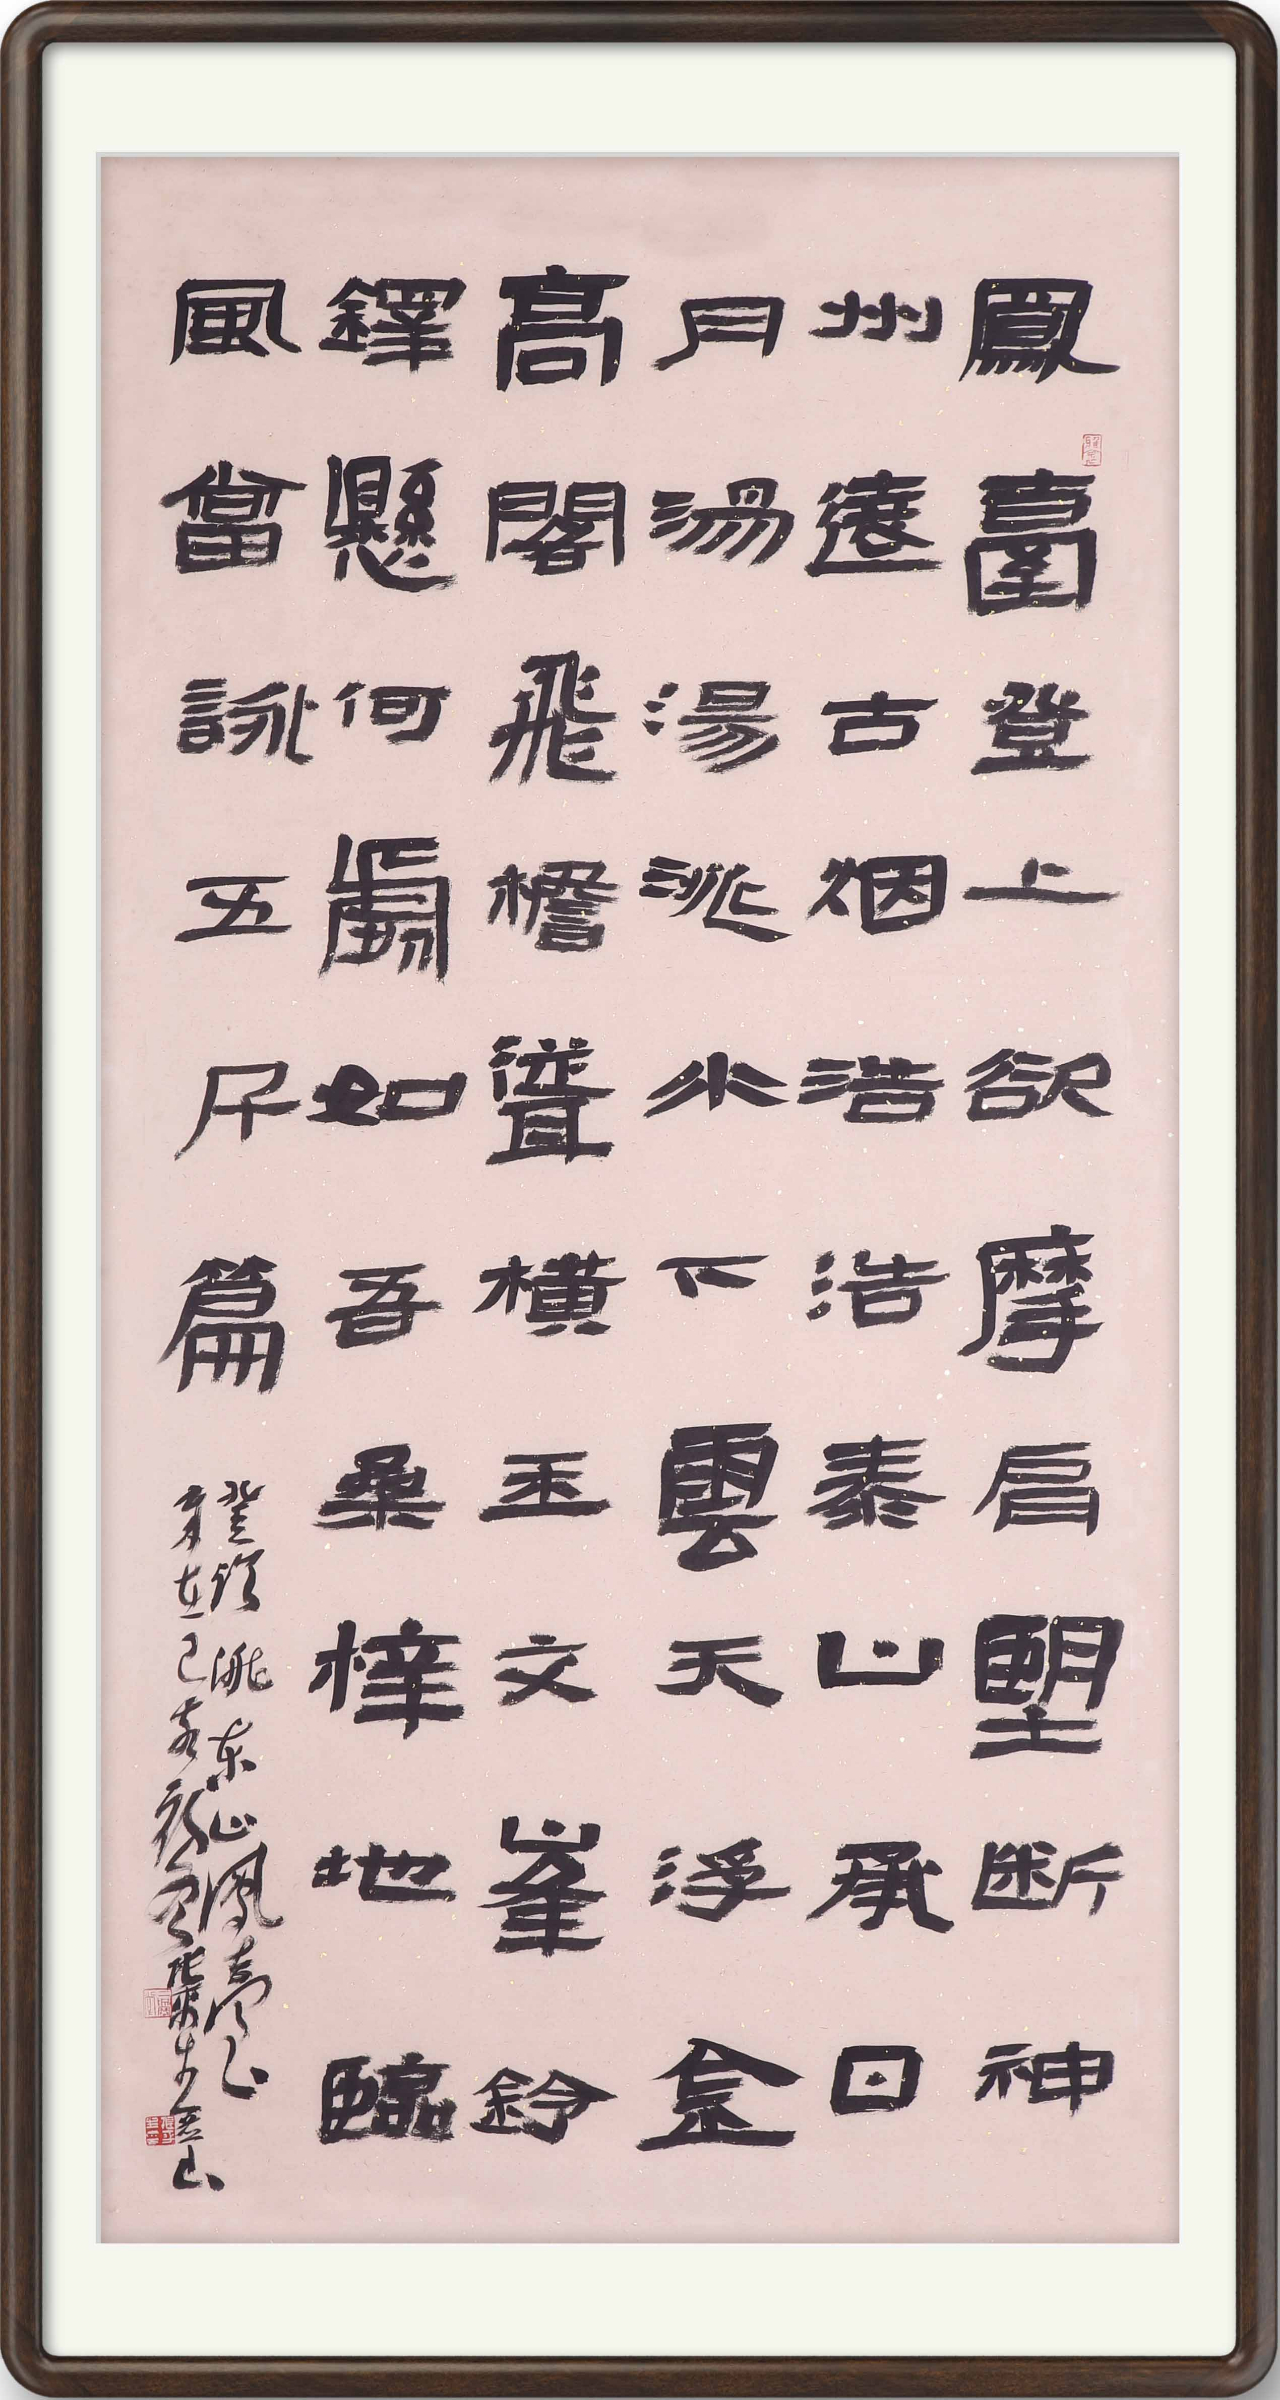 鳳臺登上欲摩肩望斷神
州遠古烟浩浩泰山承日
月湯湯洮水下雲天浮金
高閣飛檐聳橫玉文峯鈴
鐸懸何處如吾桑梓地臨
風當詠五斤篇
登臨洮東山鳳臺
歲在己亥